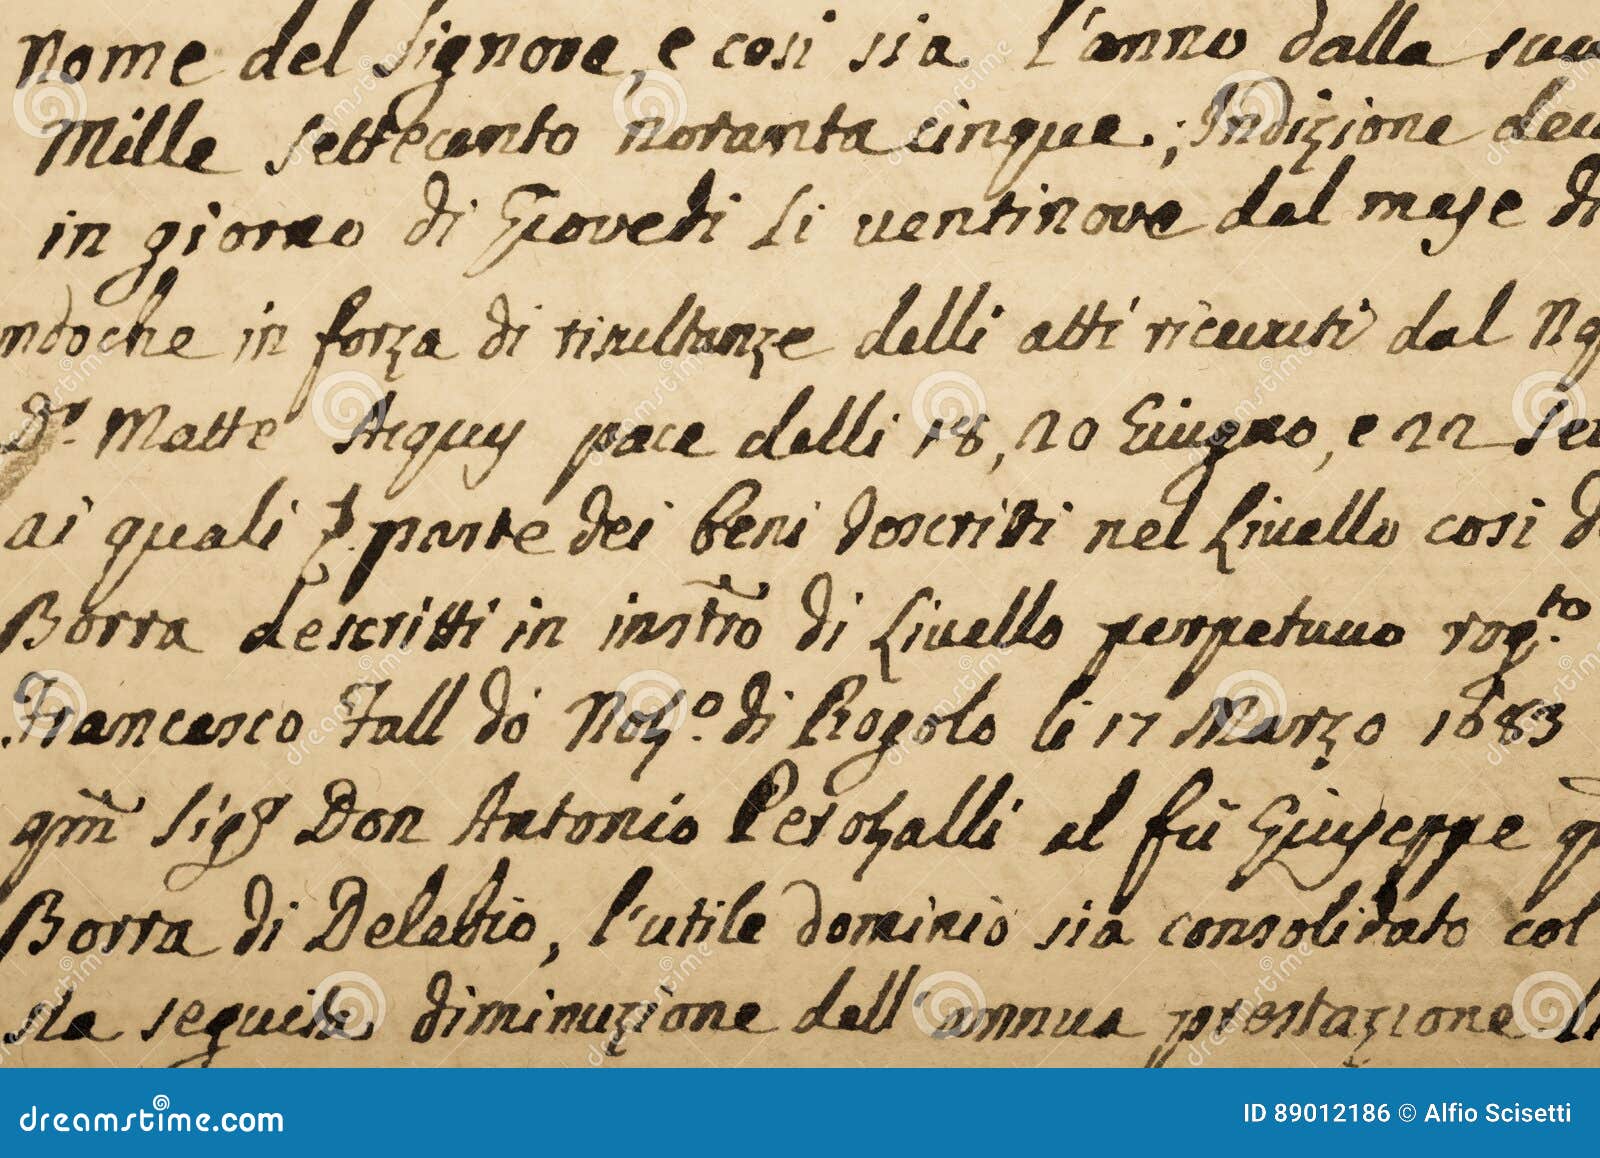 Nome del Signore, e cosi sia l'anno dalla sua
Mille settecento novanta cinque.; Indizione dec
in giorno di Giovedi li ventinove del mese di
ndoche in forza di risultanze delli atti ricevuti dal
Dr. Matte Acquy pace delli 18, 20 Giugno, e 22 Set
ai quali parte dei beni descritti nel Livello cosi d
Borra descritti in instro di Livello perpetuuo rog.to
Francesco Fall do di Rogolo li 17 Marzo 1683
qm Sigr Don Antonio al fù Giuseppe q
Borra di Delebio, l'utile dominio sia consolidato col
sta seguita diminuzione dell'annua prestazione
dreamstime.com
ID 89012186 © Alfio Scisetti